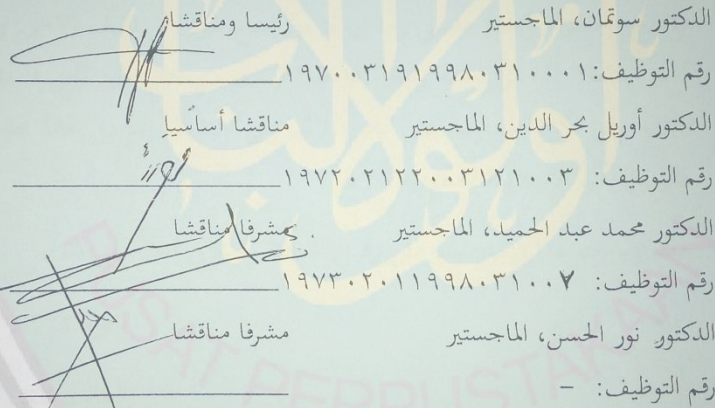 الدكتور سوتمان، الماجستير رئيسا ومناقشا
رقم التوظيف: ١٩٧٠٠٣١٩١٩٩٨٠٣١٠٠٠١
الدكتور أوريل بحر الدين، الماجستير مناقشا أساسيا
رقم التوظيف: ١٩٧٢٠٢١٢٢٠٠٣١٢١٠٠٣
الدكتور محمد عبد الحميد، الماجستير مشرفا مناقشا
رقم التوظيف: ١٩٧٣٠٢٠١١٩٩٨٠٣١٠٠٧
الدكتور نور الحسن، الماجستير مشرفا مناقشا
رقم التوظيف: -
PERPUSTAKAAN